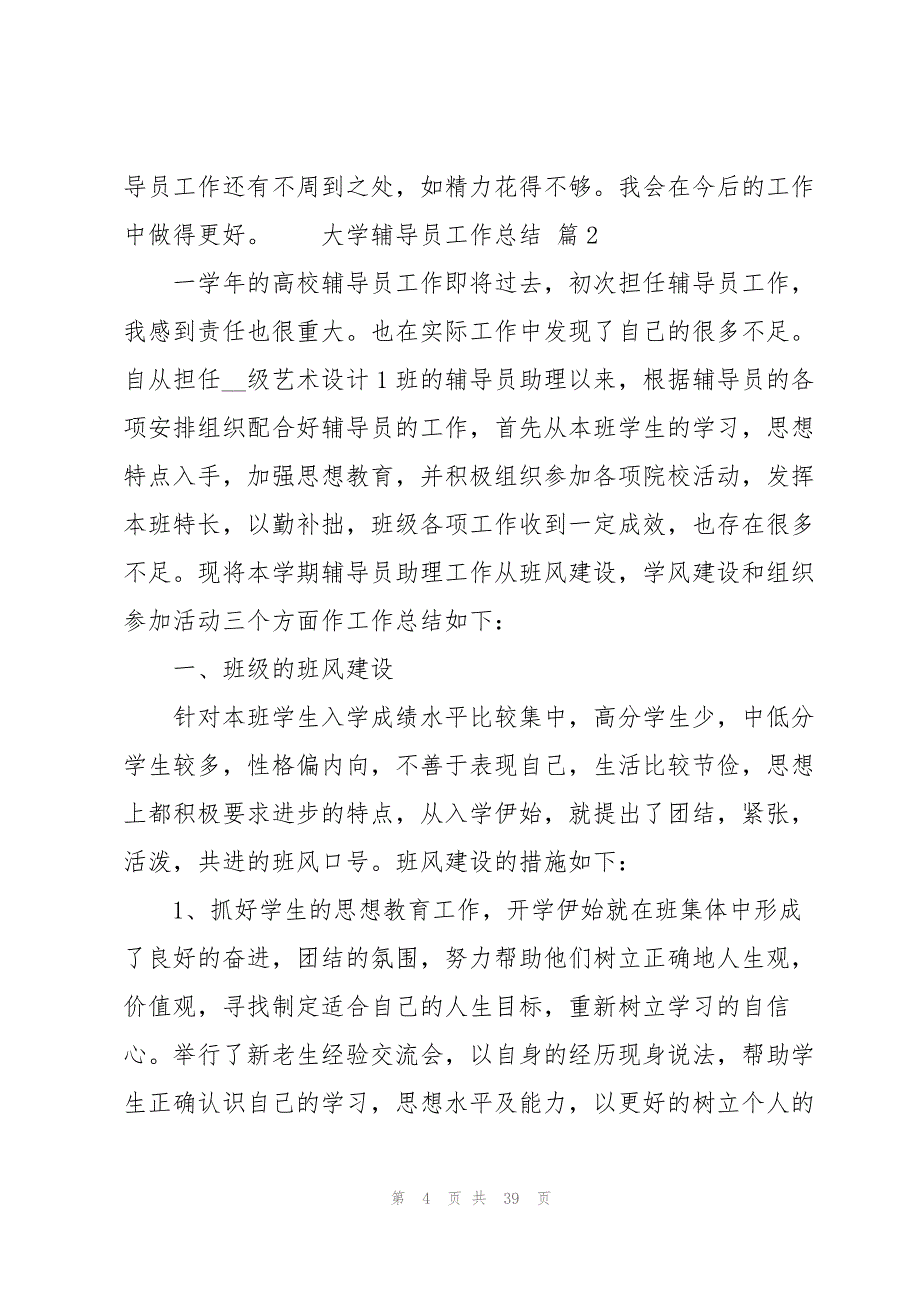 导员工作还有不周到之处，如精力花得不够。我会在今后的工作
中做得更好。　　大学辅导员工作总结 篇2
一学年的高校辅导员工作即将过去，初次担任辅导员工作，
我感到责任也很重大。也在实际工作中发现了自己的很多不足。
自从担任__级艺术设计1班的辅导员助理以来，根据辅导员的各
项安排组织配合好辅导员的工作，首先从本班学生的学习，思想
特点入手，加强思想教育，并积极组织参加各项院校活动，发挥
本班特长，以勤补拙，班级各项工作收到一定成效，也存在很多
不足。现将本学期辅导员助理工作从班风建设，学风建设和组织
参加活动三个方面作工作总结如下：
一、班级的班风建设
针对本班学生入学成绩水平比较集中，高分学生少，中低分
学生较多，性格偏内向，不善于表现自己，生活比较节俭，思想
上都积极要求进步的特点，从入学伊始，就提出了团结，紧张，
活泼，共进的班风口号。班风建设的措施如下：
1、抓好学生的思想教育工作，开学伊始就在班集体中形成
了良好的奋进，团结的氛围，努力帮助他们树立正确地人生观，
价值观，寻找制定适合自己的人生目标，重新树立学习的自信
心。举行了新老生经验交流会，以自身的经历现身说法，帮助学
生正确认识自己的学习，思想水平及能力，以更好的树立个人的
第 4 页 共 39 页